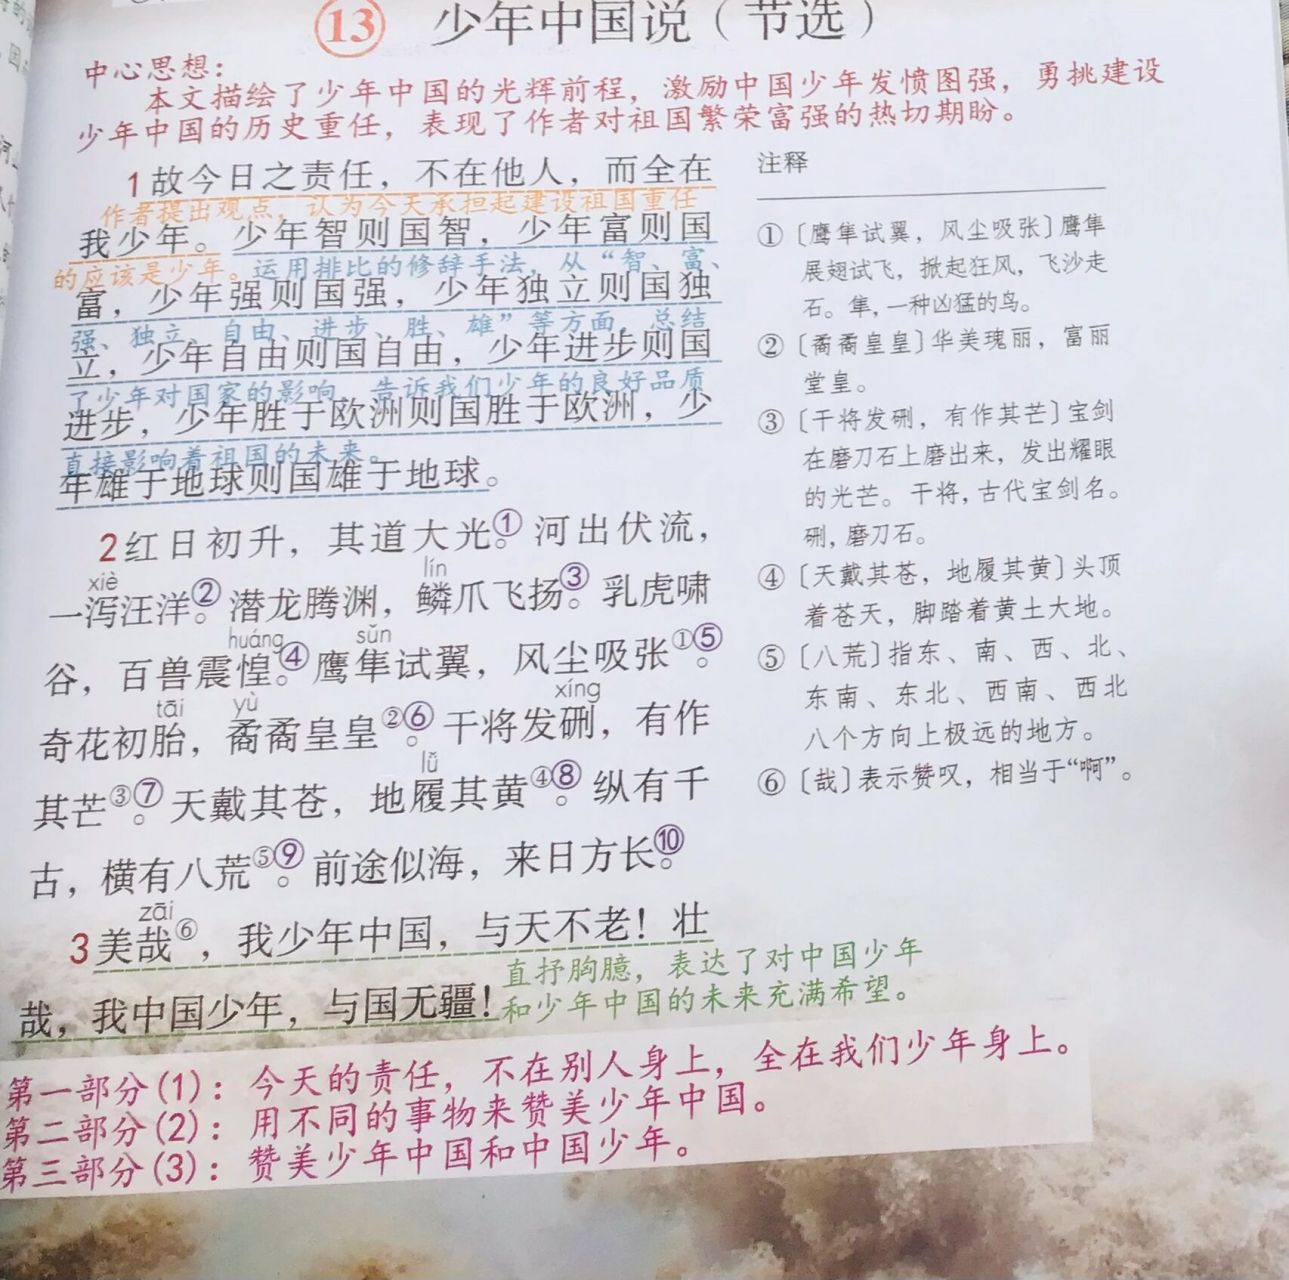 13 少年中国说（节选）
中心思想：
本文描绘了少年中国的光辉前程，激励中国少年发愤图强，勇挑建设
少年中国的历史重任，表现了作者对祖国繁荣富强的热切期盼。
1 故今日之责任，不在他人，而全在
作者提出观点，认为今天承担起建设祖国重任
我少年。少年智则国智，少年富则国
的应该是少年。运用排比的修辞手法，从“智、富、
富，少年强则国强，少年独立则国独
强、独立、自由、进步、胜、雄”等方面，总结
立，少年自由则国自由，少年进步则国
了少年对国家的影响，告诉我们少年的良好品质
进步，少年胜于欧洲则国胜于欧洲，少
直接影响着祖国的未来。
年雄于地球则国雄于地球。
2 红日初升，其道大光①。河出伏流，
xiè lín
一泻汪洋②。潜龙腾渊，鳞爪飞扬③。乳虎啸
huáng sǔn
谷，百兽震惶④。鹰隼试翼，风尘吸张①⑤。
tāi yù xíng
奇花初胎，矞矞皇皇②⑥。干将发硎，有作
lǚ
其芒③⑦。天戴其苍，地履其黄④⑧。纵有千
古，横有八荒⑤⑨。前途似海，来日方长⑩。
zāi
3 美哉⑥，我少年中国，与天不老！壮
哉，我中国少年，与国无疆！
直抒胸臆，表达了对中国少年
和少年中国的未来充满希望。
第一部分(1)：今天的责任，不在别人身上，全在我们少年身上。
第二部分(2)：用不同的事物来赞美少年中国。
第三部分(3)：赞美少年中国和中国少年。
注释
①〔鹰隼试翼，风尘吸张〕鹰隼
展翅试飞，掀起狂风，飞沙走
石。隼，一种凶猛的鸟。
②〔矞矞皇皇〕华美瑰丽，富丽
堂皇。
③〔干将发硎，有作其芒〕宝剑
在磨刀石上磨出来，发出耀眼
的光芒。干将，古代宝剑名。
硎，磨刀石。
④〔天戴其苍，地履其黄〕头顶
着苍天，脚踏着黄土大地。
⑤〔八荒〕指东、南、西、北、
东南、东北、西南、西北
八个方向上极远的地方。
⑥〔哉〕表示赞叹，相当于“啊”。